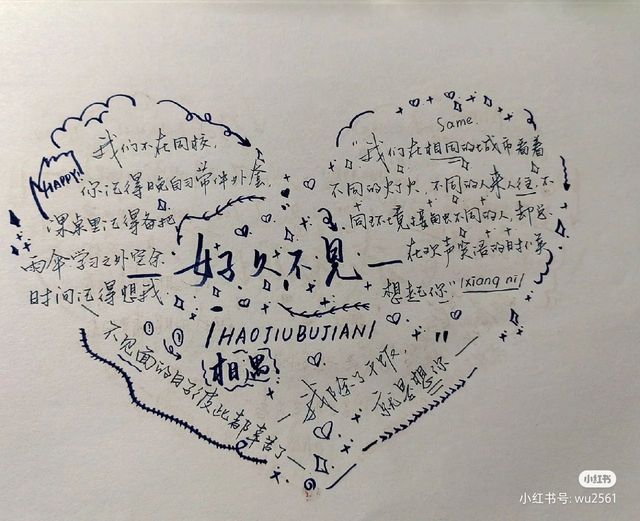 HAPPY!
我们不在同校，
你记得晚自习带件外套，
课桌里记得备把
雨伞学习之外空余
时间记得想我
—不见面的日子彼此都辛苦了—
好久不見—
/HAOJIUBUJIAN/
相遇
Same.
"我们在相同的城市看着
不同的灯火、不同的人来人往、不
同环境接触不同的人、却总
在欢声笑语的时候
想起你"/xiang ni/
我除了干饭，
就是想你—
小红书
小红书号: wu2561